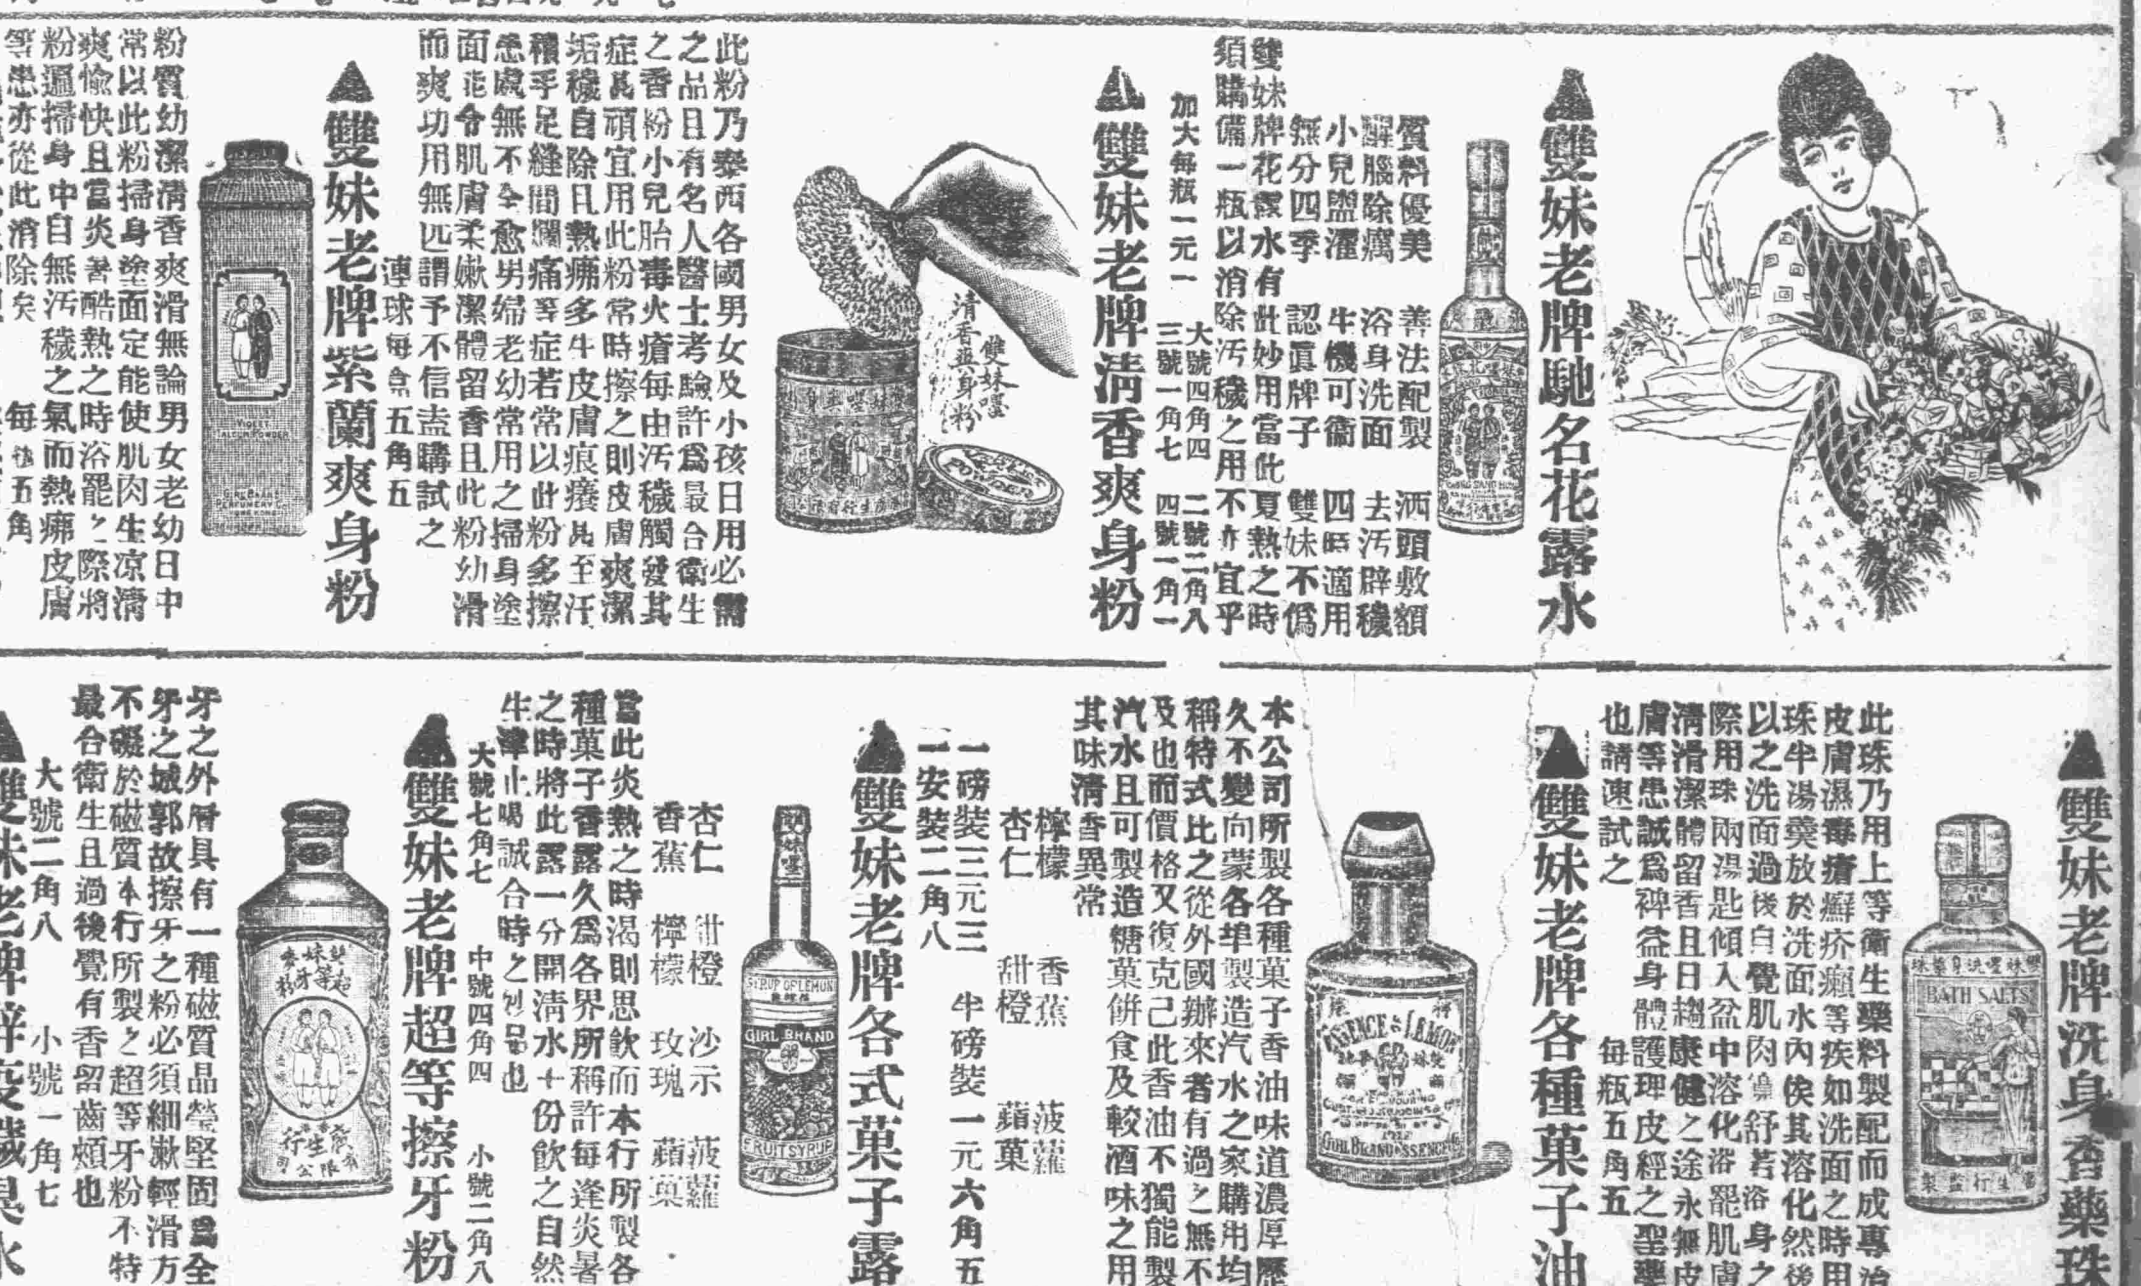 ▲雙妹老牌馳名花露水
質料優美　善法配製　洒頭敷額
醒腦除癘　浴身洗面　去汚辟穢
小兒盥濯　生機可衞　四時適用
無分四季　認眞牌子　雙妹不僞
雙妹牌花露水有此妙用當此夏熱之時
須購備一瓶以消除汚穢之用不亦宜乎
加大每瓶一元一　大號四角四　二號二角八
三號一角七　四號一角一
▲雙妹老牌清香爽身粉
雙妹嚜
清香爽身粉
此粉乃泰西各國男女及小孩日用必需
之品且有名人醫士考驗許爲最合衞生
之香粉小兒胎毒火瘡每由汚穢觸發其
症甚頑宜用此粉常時擦之則皮膚爽潔
垢穢自除且熱疿多生皮膚痕癢甚至汗
積手足縫間爛痛等症若常以此粉多擦
患處無不全愈男婦老幼常用之掃身塗
面能令肌膚柔嫩潔體留香且此粉幼滑
而爽功用無匹謂予不信盍購試之
連球每盒五角五
▲雙妹老牌紫蘭爽身粉
VIOLET
TALCUM POWDER
GIRL BRAND
PERFUMERY Co
HONG KONG
粉質幼潔清香爽滑無論男女老幼日中
常以此粉掃身塗面定能使肌肉生凉清
爽愉快且當炎暑酷熱之時浴罷之際將
粉遍掃身中自無汚穢之氣而熱疿皮膚
等患亦從此消除矣　每　五角
▲雙妹老牌洗身香藥珠
雙妹嚜洗身藥珠
BATH SALTS
廣生行監製
此珠乃用上等衞生藥料製配而成專治
皮膚濕毒瘡癬疥癩等疾如洗面之時用
珠半湯羮放於洗面水內俟其溶化然後
以之洗面過後自覺肌肉　舒若浴身之
際用珠兩湯匙傾入盆中溶化浴罷肌膚
淸滑潔體留香且日趨康健之途永無皮
膚等患誠爲裨益身體護理皮經之聖藥
也請速試之　每瓶五角五
▲雙妹老牌各種菓子油
ESSENCE of LEMON
GIRL BRAND ESSENCE
本公司所製各種菓子香油味道濃厚歷
久不變向蒙各埠製造汽水之家購用均
稱特式比之從外國辦來者有過之無不
及也而價格又復克己此香油不獨能製
汽水且可製造糖菓餅食及較酒味之用
其味淸香異常
檸檬　香蕉　菠蘿
杏仁　甜橙　蘋菓
一磅裝三元三　半磅裝一元六角五
一安裝二角八
▲雙妹老牌各式菓子露
雙妹嚜
SYRUP OF LEMON
GIRL BRAND
FRUIT SYRUP
杏仁　甜橙　沙示　菠蘿
香蕉　檸檬　玫瑰　蘋菓
當此炎熱之時渴則思飮而本行所製各
種菓子香露久爲各界所稱許每逢炎暑
之時將此露一分開淸水十份飮之自然
生津止喝誠合時之妙品也
大號七角七　中號四角四　小號二角八
▲雙妹老牌超等擦牙粉
雙妹嚜
超等牙粉
廣生行
有限公司
牙之外層具有一種磁質品瑩堅固爲全
牙之城郭故擦牙之粉必須細嫩輕滑方
不礙於磁質本行所製之超等牙粉不特
最合衞生且過後覺有香留齒頰也
大號二角八　小號一角七
▲雙妹老牌辟疫穢臭水